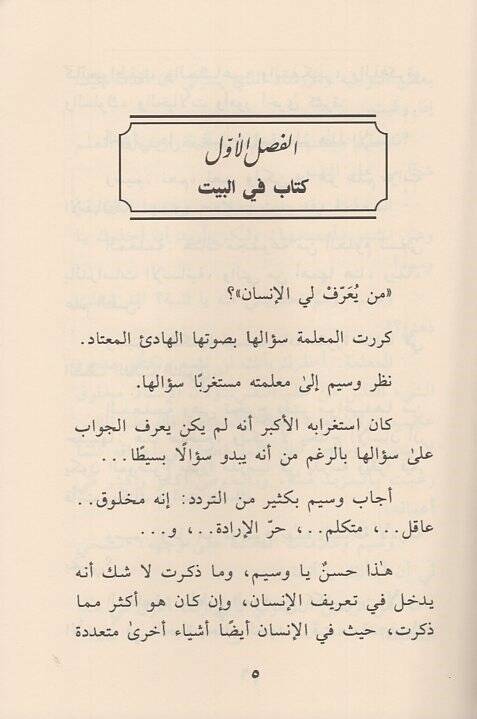 الفصل الأوّل
كتاب في البيت
«من يُعَرِّفْ لي الإنسان»؟
كررت المعلمة سؤالها بصوتها الهادئ المعتاد.
نظر وسيم إلىٰ معلمته مستغربًا سؤالها.
كان استغرابه الأكبر أنه لم يكن يعرف الجواب
علىٰ سؤالها بالرغم من أنه يبدو سؤالًا بسيطًا...
أجاب وسيم بكثير من التردد: إنه مخلوق..
عاقل..، متكلم..، حرّ الإرادة..، و...
هٰذا حسنٌ يا وسيم، وما ذكرت لا شك أنه
يدخل في تعريف الإنسان، وإن كان هو أكثر مما
ذكرت، حيث في الإنسان أيضًا أشياء أخرىٰ متعددة
٥